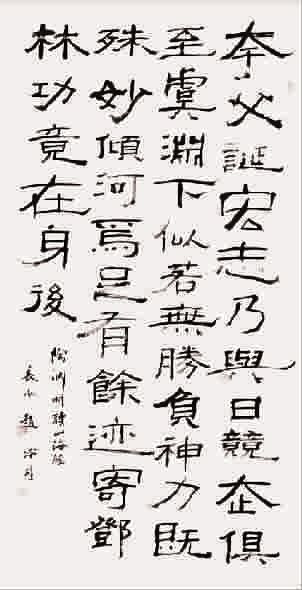 夸父誕宏志乃與日競走俱
至虞淵下似若無勝負神力既
殊妙傾河焉足有餘迹寄鄧
林功竟在身後
陶淵明讀山海經
趙